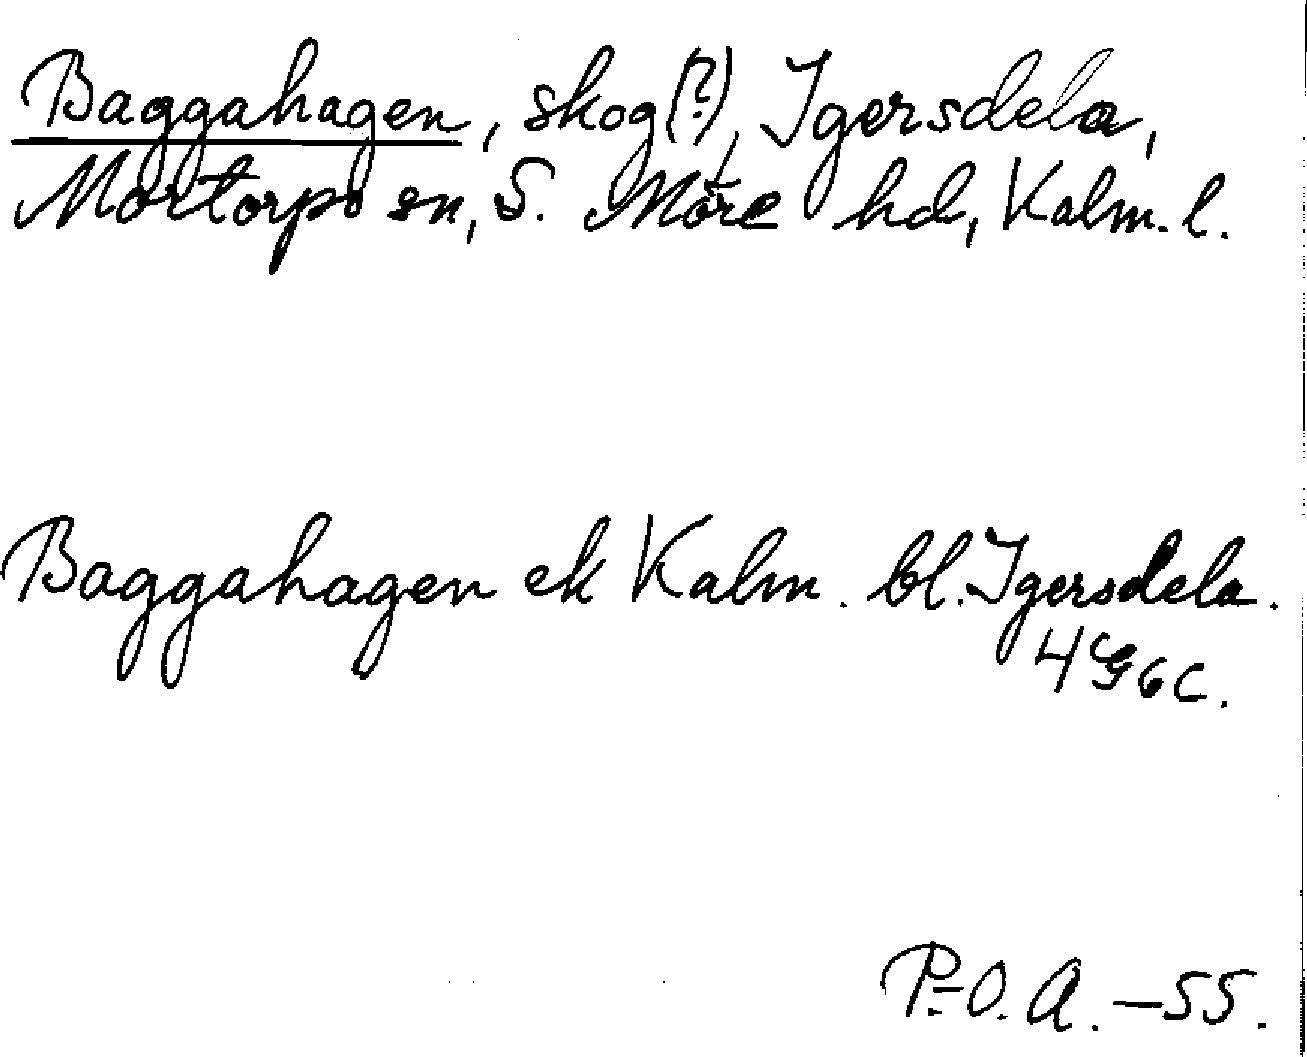 Baggahagen, skog(?), Igersdela,
Mortorps sn, S. Möre hd, Kalm. l.
Baggahagen ek Kalm. bl. Igersdela.
4G6c.
P.-O. A. – 55.